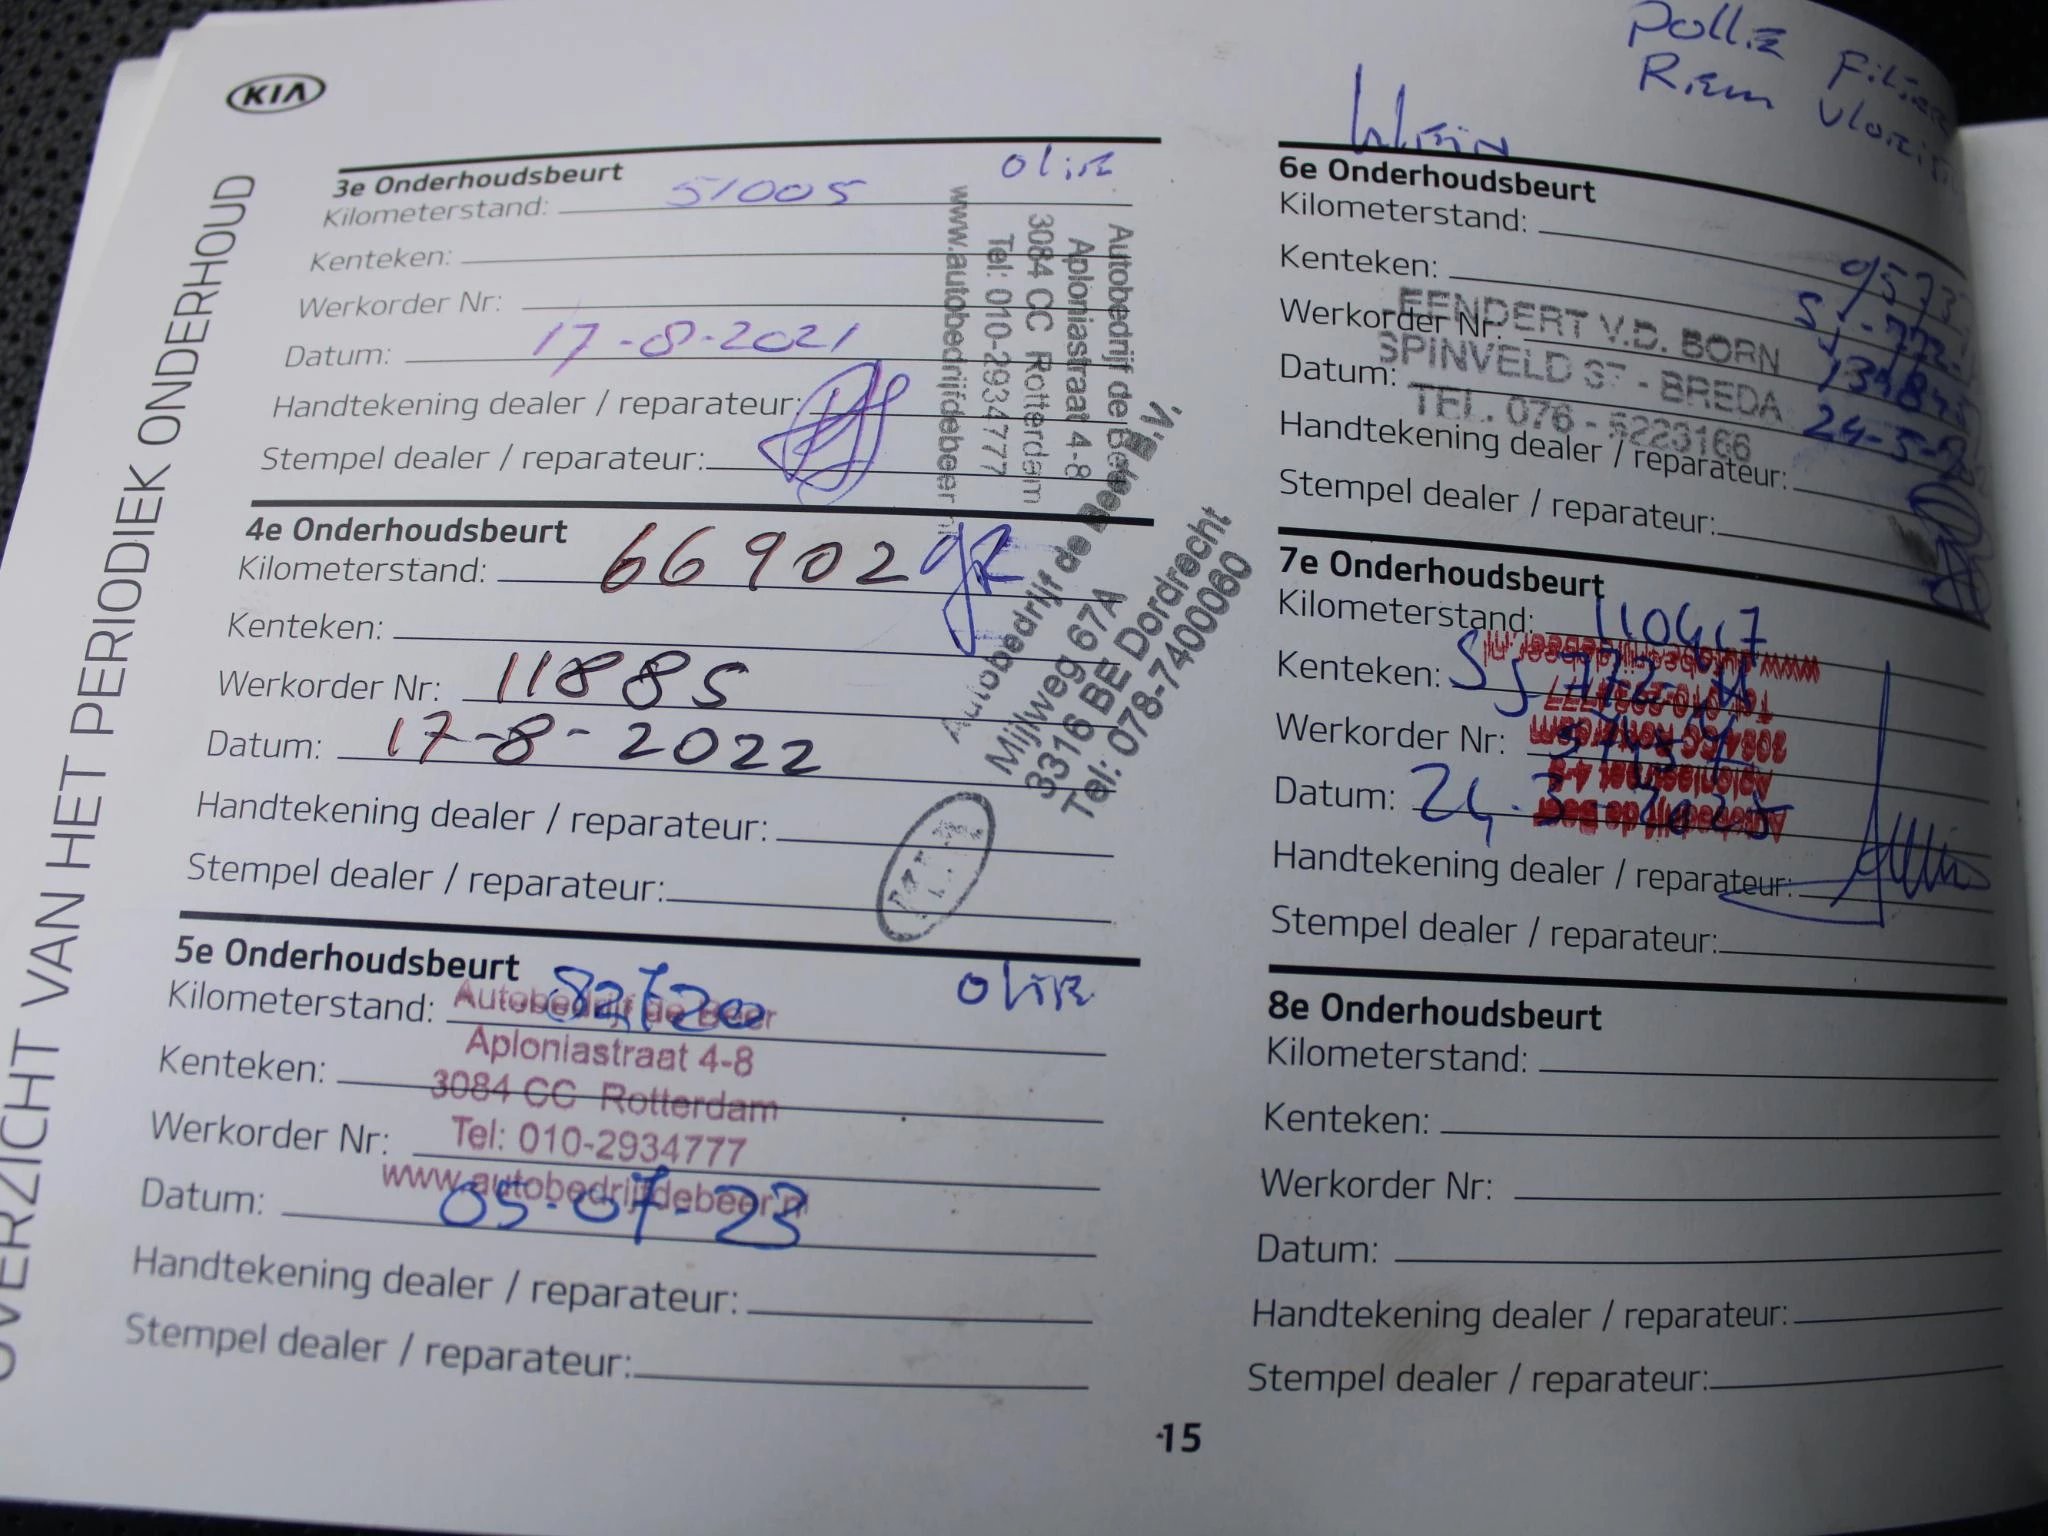 KIA
OVERZICHT VAN HET PERIODIEK ONDERHOUD
3e Onderhoudsbeurt
olie
Kilometerstand: 51005
Kenteken:
Werkorder Nr:
Datum: 17-8-2021
Handtekening dealer / reparateur:
Stempel dealer / reparateur:
Autobedrijf de Beer
Aploniastraat 4-8
3084 CC Rotterdam
Tel: 010-2934777
www.autobedrijfdebeer.nl
4e Onderhoudsbeurt
Kilometerstand: 66902
Kenteken:
Werkorder Nr: 11885
Datum: 17-8-2022
Handtekening dealer / reparateur:
Stempel dealer / reparateur:
Autobedrijf de Beer B.V.
Mijlweg 67A
3316 BE Dordrecht
Tel: 078-7400060
5e Onderhoudsbeurt
olie
Kilometerstand: 82720
Kenteken:
Werkorder Nr:
Datum: 05-07-23
Handtekening dealer / reparateur:
Stempel dealer / reparateur:
Autobedrijf de Beer
Aploniastraat 4-8
3084 CC Rotterdam
Tel: 010-2934777
www.autobedrijfdebeer.nl
Pollen Filter
Riem
Klein
6e Onderhoudsbeurt
Kilometerstand:
Kenteken:
Werkorder Nr:
Datum: 24-5-
Handtekening dealer / reparateur:
Stempel dealer / reparateur:
LEENDERT V.D. BORN
SPINVELD 37 - BREDA
TEL. 076 - 5223166
7e Onderhoudsbeurt
Kilometerstand:
Kenteken:
Werkorder Nr:
Datum: 24-3-2025
Handtekening dealer / reparateur:
Stempel dealer / reparateur:
Autobedrijf de Beer
Aploniastraat 4-8
3084 CC Rotterdam
Tel: 010-2934777
www.autobedrijfdebeer.nl
8e Onderhoudsbeurt
Kilometerstand:
Kenteken:
Werkorder Nr:
Datum:
Handtekening dealer / reparateur:
Stempel dealer / reparateur:
15